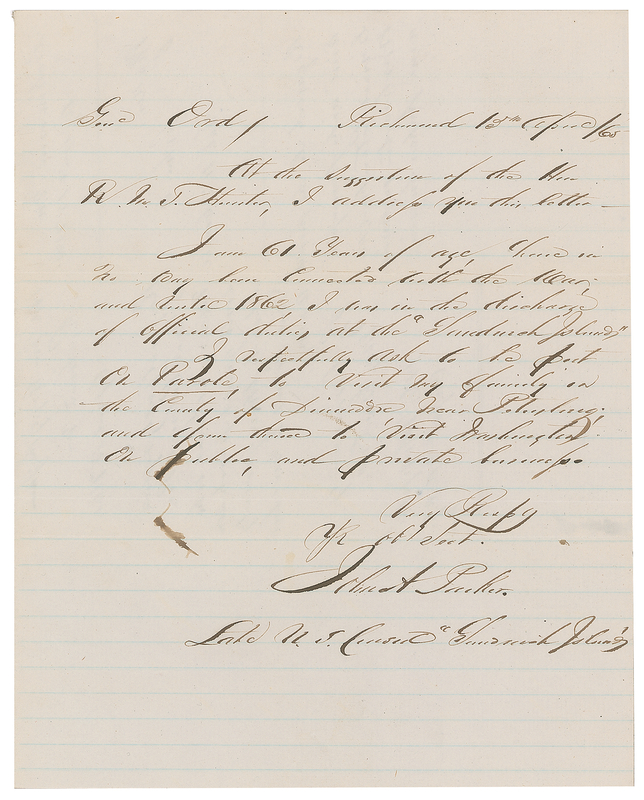 Genl Ord, Richmond 15th April /65
At the suggestion of the Hon
R. M. T. Hunter, I address you this letter—
I am 61 Years of age, have in
no way been Connected with the War;
and until 1862 I was in the discharge
of Official duties at the "Sandwich Islands"
I respectfully ask to be put
On Parole, to visit my family in
the County of Dinwiddie near Petersburg;
and from thence to visit Washington
On public, and private business.
Very Respy
Yr obt Svt.
John A Parker.
Late U. S. Consul "Sandwich Islands"